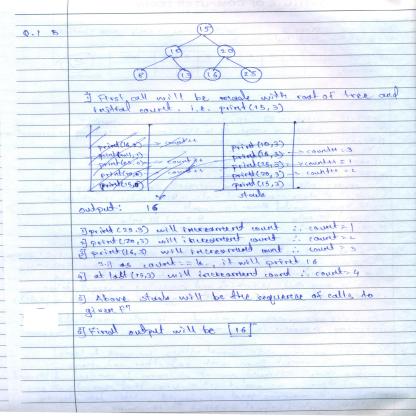 Q.1 B
15
10 20
5 13 16 25
1) First call will be made with root of tree and
initial count. i.e. print (15, 3)
print(15,3)
print(16,3) → count++ = 3
print(25,3) → count++ = 1
print(20,3) → count++ = 2
print(15,3)
stack
output: 16
1) print (25,3) will increament count ∴ count = 1
2) print (20,3) will increament count ∴ count = 2
3) print (16,3) will increament count ∴ count = 3
as count == k, it will print 16
4) at last (15,3) will increament count ∴ count = 4
5) Above stack will be the sequence of calls to
given fⁿ
6) Final output will be [16]